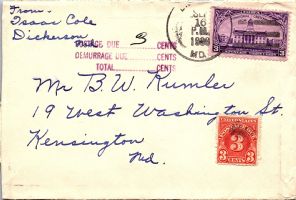 From-
Isaac Cole
Dickerson
16
P.M.
MD.
3
POSTAGE DUE CENTS
DEMURRAGE DUE CENTS
TOTAL CENTS
Mr B. W. Rumler
19 West Washington St.
Kensington
Md.
3
CENTS